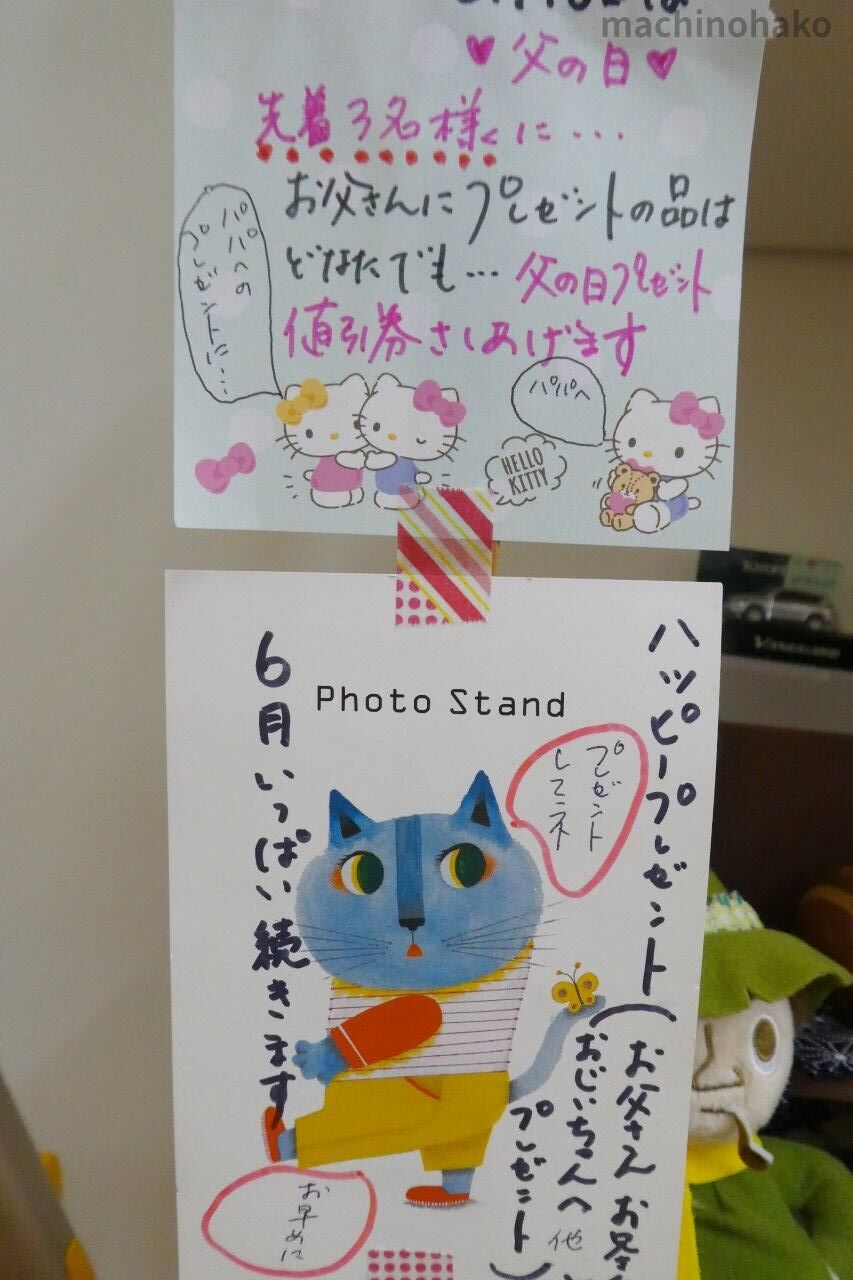 machinohako
♥父の日♥
先着3名様に...
お父さんにプレゼントの品は
どなたでも...父の日プレゼント
値引券さしあげます
パパへの
プレゼントに...
パパへ
HELLO
KITTY
Photo Stand
ハッピープレゼント
(お父さん お兄
おじいちゃんへ 他
プレゼント)
プレゼント
してネ
6月いっぱい続きます
お早めに
VANGUARD